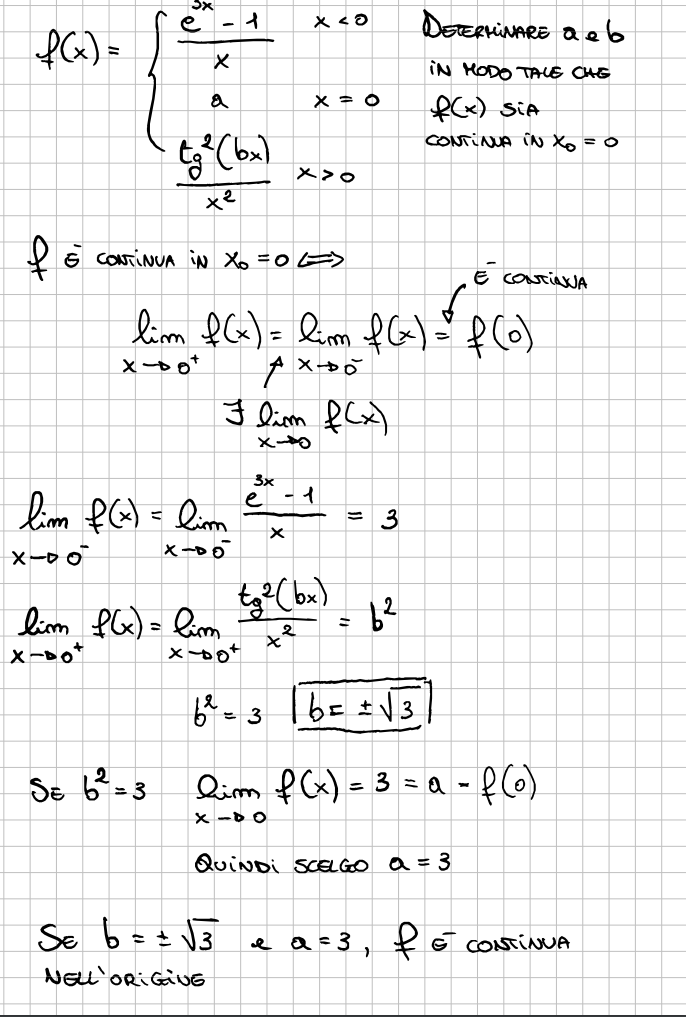 f(x) = { (e^{3x} - 1)/x   x < 0
a   x = 0
tg²(bx)/x²   x > 0
DETERMINARE a e b
IN MODO TALE CHE
f(x) SIA
CONTINUA IN x₀ = 0
f È CONTINUA IN x₀ = 0 ⟺
È CONTINUA
lim_{x→0⁺} f(x) = lim_{x→0⁻} f(x) = f(0)
∃ lim_{x→0} f(x)
lim_{x→0⁻} f(x) = lim_{x→0⁻} (e^{3x} - 1)/x = 3
lim_{x→0⁺} f(x) = lim_{x→0⁺} tg²(bx)/x² = b²
b² = 3   b = ±√3
SE b² = 3   lim_{x→0} f(x) = 3 = a - f(0)
QUINDI SCELGO a = 3
SE b = ±√3 e a = 3, f È CONTINUA
NELL'ORIGINE